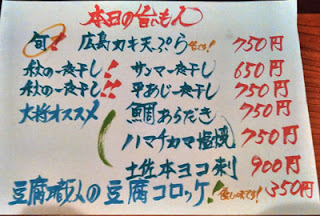 本日の台もん
旬! 広島カキ天ぷら 750円
秋の一夜干し!! サンマ一夜干し 650円
秋の一夜干し!! 平あじ一夜干し 750円
大将オススメ 鯛あらだき 750円
ハマチカマ塩焼 750円
土佐本ヨコ刺 900円
豆腐職人の豆腐コロッケ! 350円